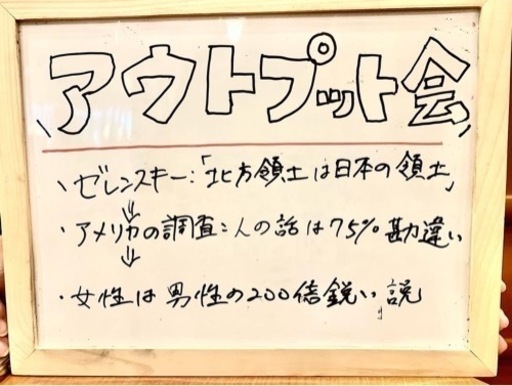 アウトプット会
・ゼレンスキー:「北方領土は日本の領土」
↓
・アメリカの調査:人の話は75%勘違い
↓
・女性は男性の200倍鋭い説